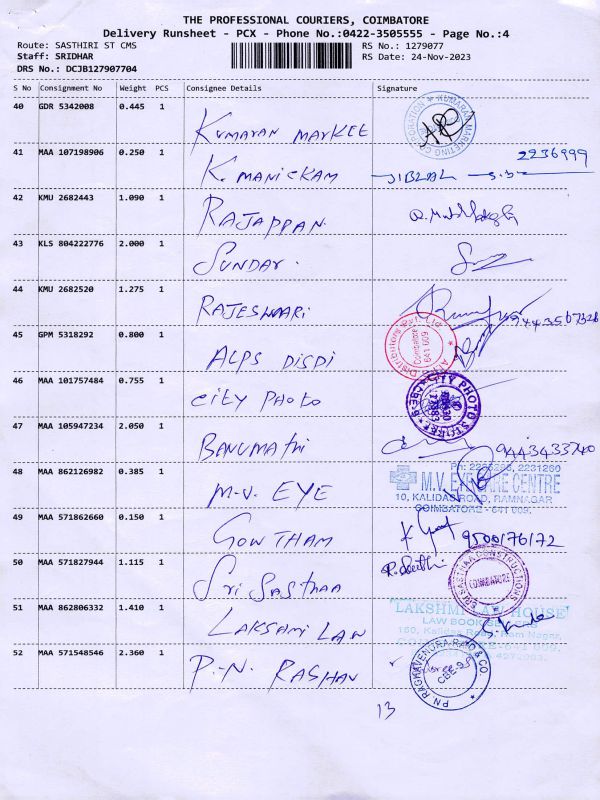 THE PROFESSIONAL COURIERS, COIMBATORE
Delivery Runsheet - PCX - Phone No.:0422-3505555 - Page No.:4
Route: SASTHIRI ST CMS
RS No.: 1279077
Staff: SRIDHAR
RS Date: 24-Nov-2023
DRS No.: DCJB127907704
S No Consignment No Weight PCS Consignee Details Signature
40 GDR 5342008 0.445 1
KUMARAN MARKEE
KUMARAN MARKETING CORPORATION
41 MAA 107198906 0.250 1
2236999
K. MANICKAM
42 KMU 2682443 1.090 1
RAJAPPAN.
43 KLS 804222776 2.000 1
SUNDAR.
44 KMU 2682520 1.275 1
RAJESWARI
45 GPM 5318292 0.800 1
ALPS DISDI
Distributors Pvt. Ltd
Coimbatore
641 009
46 MAA 101757484 0.755 1
CITY PHOTO
CITY PHOTO
47 MAA 105947234 2.050 1
BANUMAThi
9443433740
48 MAA 862126982 0.385 1
M.V. EYE
M.V. EYE CARE CENTRE
10, KALIDAS ROAD, RAMNAGAR
COIMBATORE - 641 009.
49 MAA 571862660 0.150 1
GOWTHAM
9500176172
50 MAA 571827944 1.115 1
Sri SASTHAA
SRI SASTHAA CONSTRUCTIONS
COIMBATORE
51 MAA 862806332 1.410 1
LAKSAMI LAW
LAKSHMI LAW HOUSE
LAW BOOK
160, Kalidas Road, Ram Nagar,
52 MAA 571548546 2.360 1
P.N. RAGHAV
PN RAGHAVENDRA RAO & CO
CBE-9
13